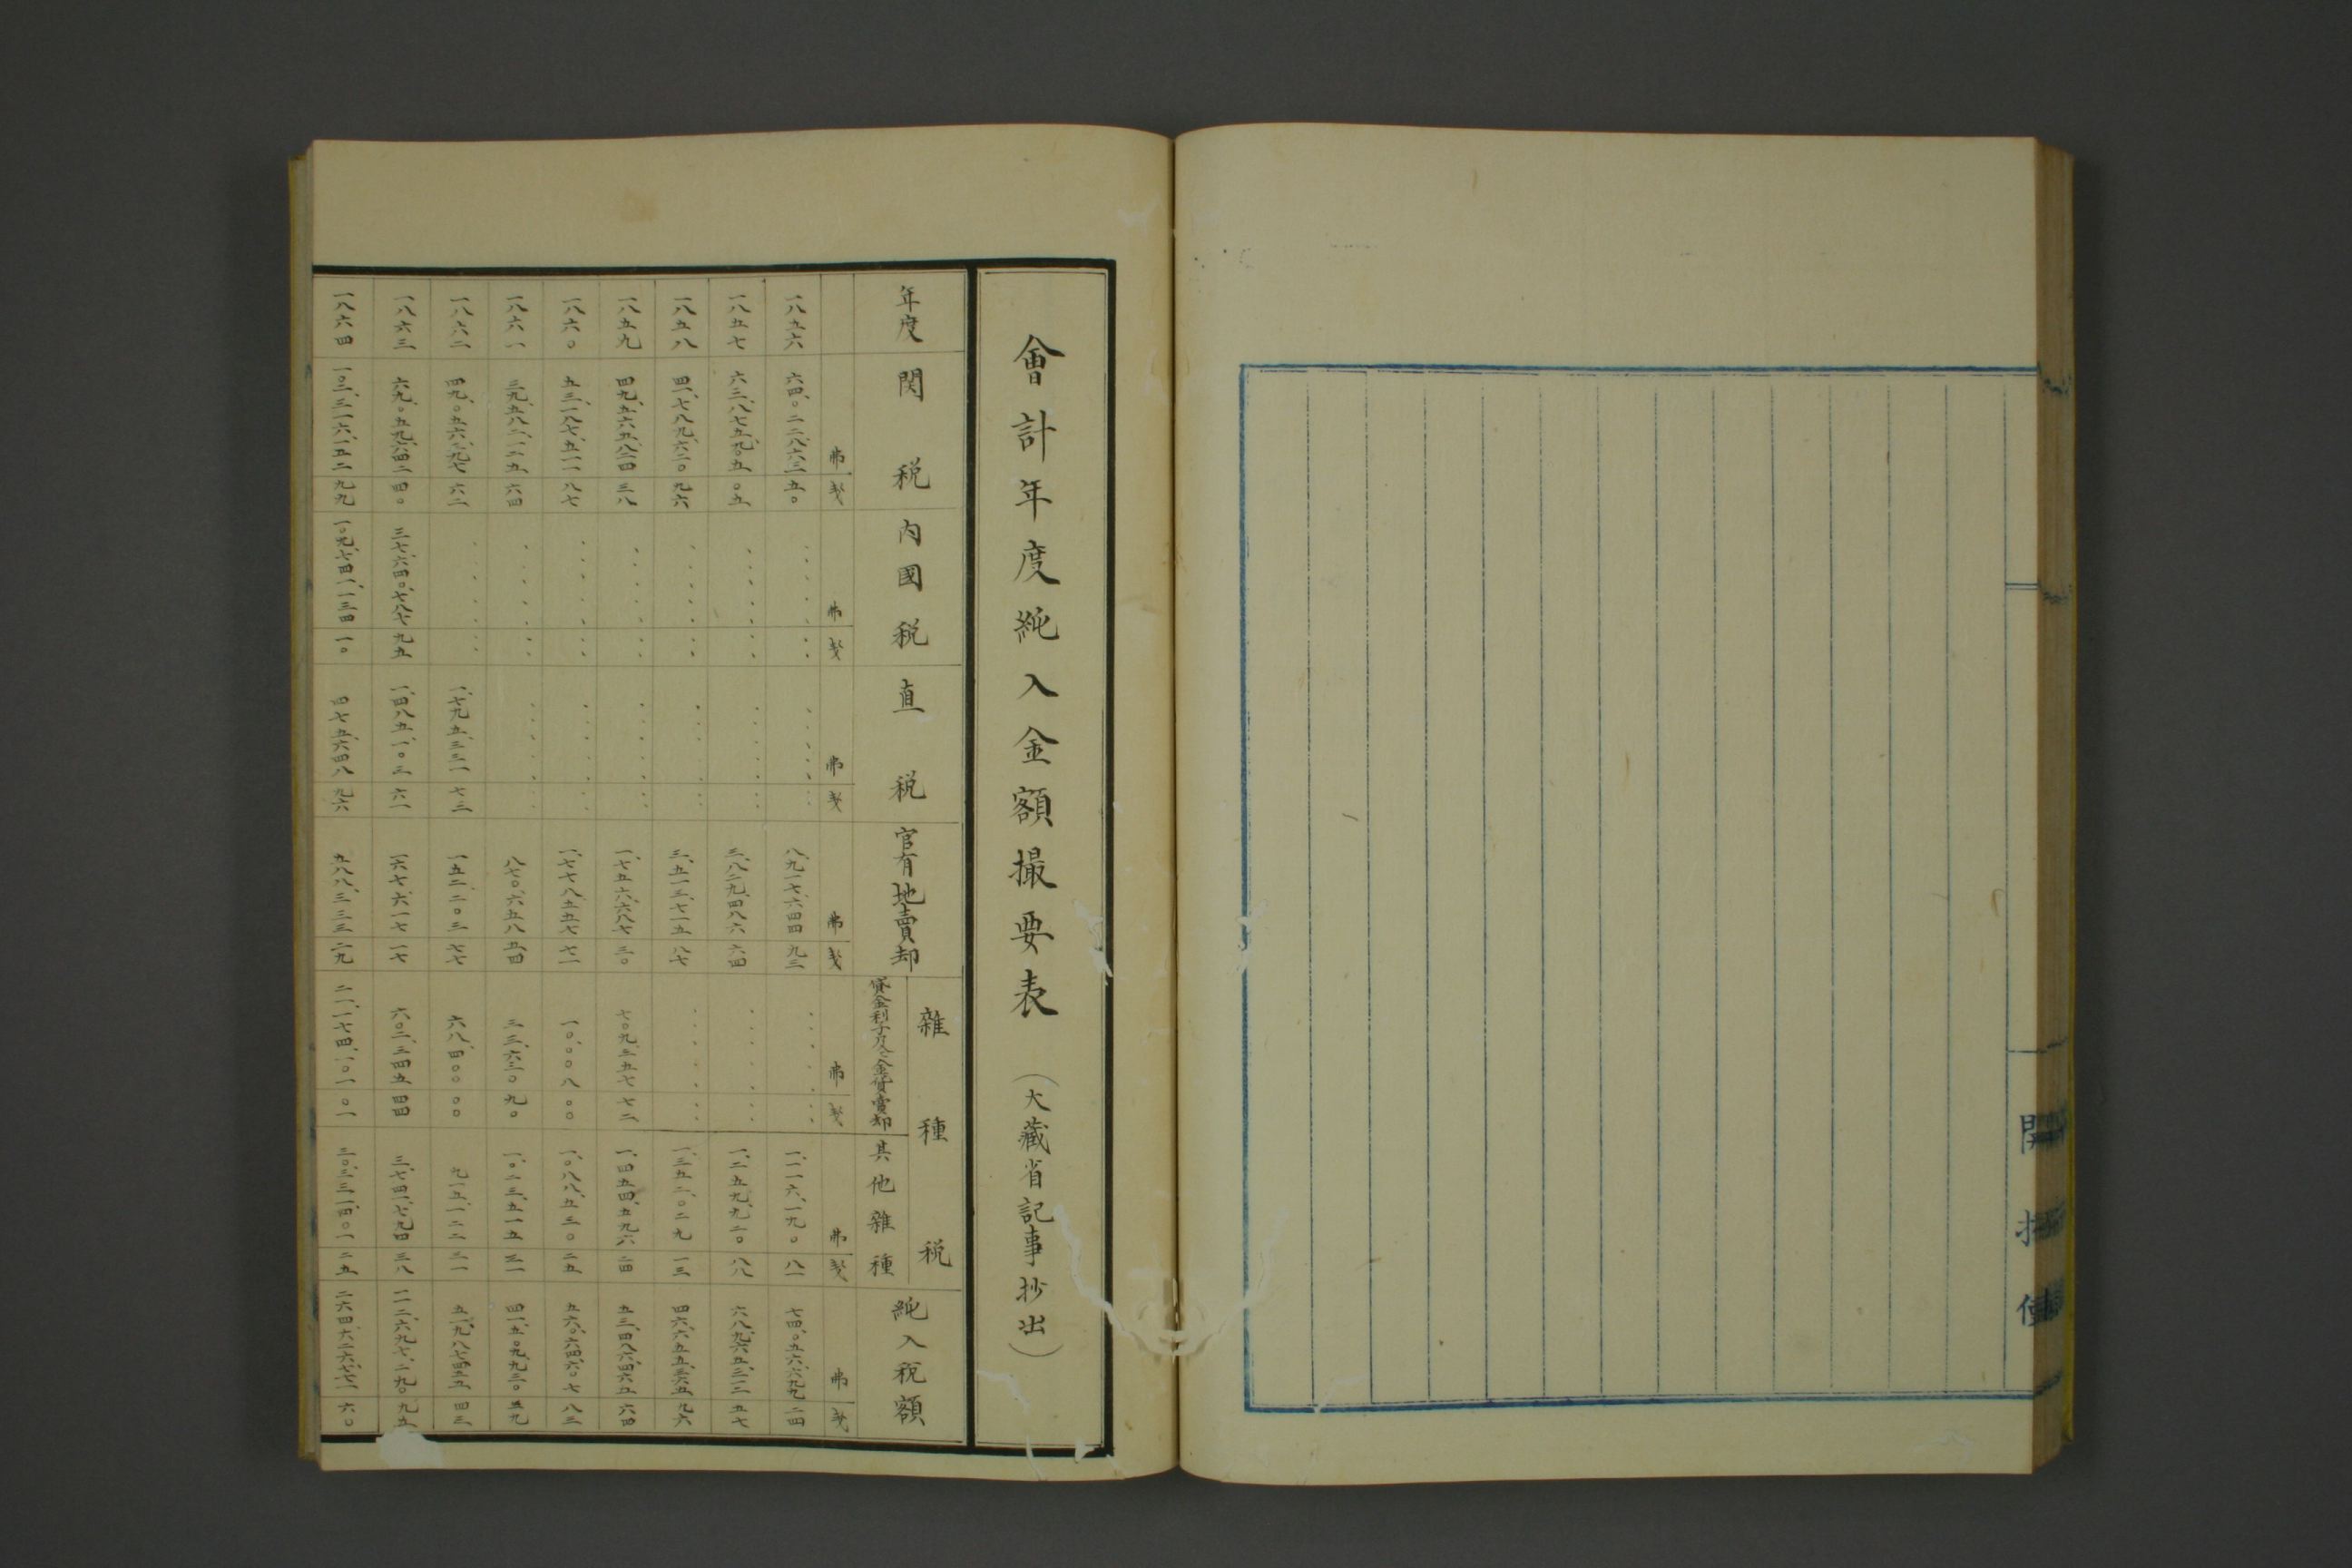 開拓使
會計年度純入金額撮要表 (大藏省記事抄出)
年度 関税 内國税 直税 官有地賣却 雜種税 貸金利子及金貨賣却 其他雜種 純入税額
弗 戔 弗 戔 弗 戔 弗 戔 弗 戔 弗 戔 弗 戔
一八五六 六四、〇二二、八六三 五〇 ..... .. ..... .. 八、九一七、六四四 九三 .... .. 一、一一六、一九〇 八一 七四、〇五六、六九九 二四
一八五七 六三、八七五、九〇五 〇五 ..... .. ..... .. 三、八二九、四八六 六四 .... .. 一、二五九、九二〇 八八 六八、九六五、三一二 五七
一八五八 四一、七八九、六二〇 九六 ..... .. ..... .. 三、五一三、七一五 八七 .... .. 一、三五二、〇二九 一三 四六、六五五、三六五 九六
一八五九 四九、五六五、八二四 三八 ..... .. ..... .. 一、七五六、六八七 三〇 七〇九、三五七 七二 一、四五四、五九六 二四 五三、四八六、四六五 六四
一八六〇 五三、一八七、五一一 八七 ..... .. ..... .. 一、七七八、五五七 七一 一〇、〇〇八 〇〇 一、〇八八、五三〇 二五 五六、〇六四、六〇七 八三
一八六一 三九、五八二、一二五 六四 ..... .. ..... .. 八七〇、六五八 五四 三三、六三〇 九〇 一、〇二三、五一五 三一 四一、五〇九、九三〇 三九
一八六二 四九、〇五六、三九七 六二 ..... .. 一、七九五、三三一 七三 一五二、二〇三 七七 六八、四〇〇 〇〇 九一五、一二二 三一 五一、九八七、四五五 四三
一八六三 六九、〇五九、六四二 四〇 三七、六四〇、七八七 九五 一、四八五、一〇三 六一 一六七、六一七 一七 六〇二、三四五 四四 三、七四一、七九四 三八 一一二、六九七、二九〇 九五
一八六四 一〇二、三一六、一五二 九九 一〇九、七四一、一三四 一〇 四七五、六四八 九六 五八八、三三三 二九 二一、一七四、一〇一 〇一 三〇、三三一、四〇一 二五 二六四、六二六、七七一 六〇